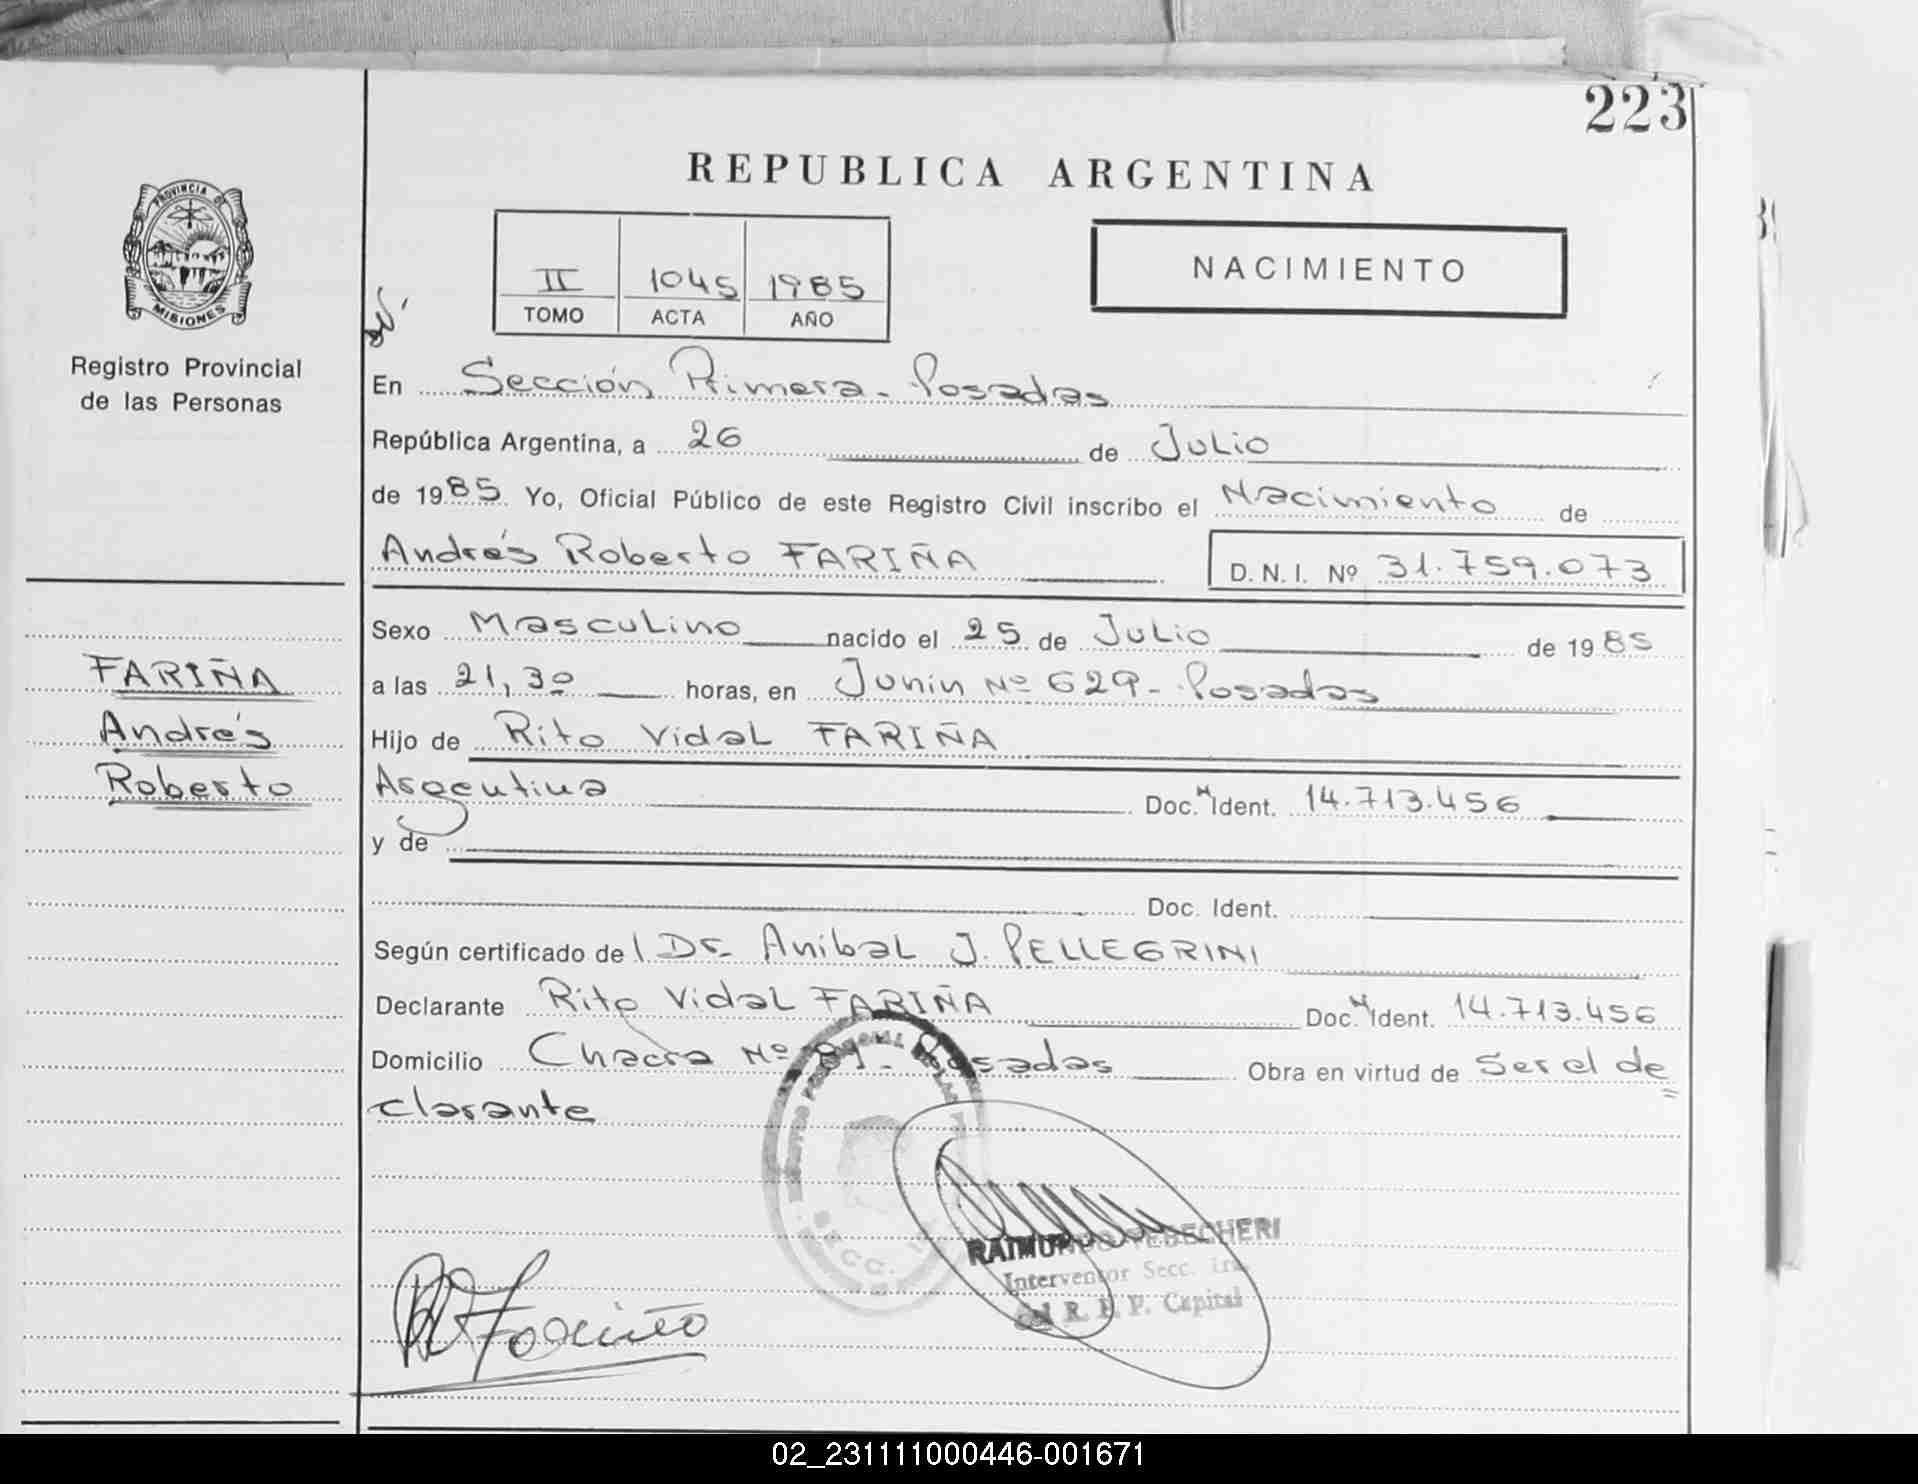 223
REPUBLICA ARGENTINA
PROVINCIA DE
MISIONES
Registro Provincial
de las Personas
II 1045 1985
TOMO ACTA AÑO
NACIMIENTO
En Sección Primera - Posadas
República Argentina, a 26 de Julio
de 1985 Yo, Oficial Público de este Registro Civil inscribo el Nacimiento de
Andrés Roberto FARIÑA D.N.I. Nº 31.759.073
Sexo Masculino nacido el 25 de Julio de 1985
FARIÑA
a las 21,30 horas, en Junin Nº 629 - Posadas
Andrés
Hijo de Rito Vidal FARIÑA
Roberto
Argentina Doc. N Ident. 14.713.456
y de
Doc. Ident.
Según certificado del Dr. Anibal J. PELLEGRINI
Declarante Rito Vidal FARIÑA Doc. N Ident. 14.713.456
Domicilio Chacra Nº 89 - Posadas Obra en virtud de Ser el de=
clarante
SECC.
RAIMUNDO TEBECHERI
Interventor Secc. 1ra.
del R. P. P. Capital
02_231111000446-001671